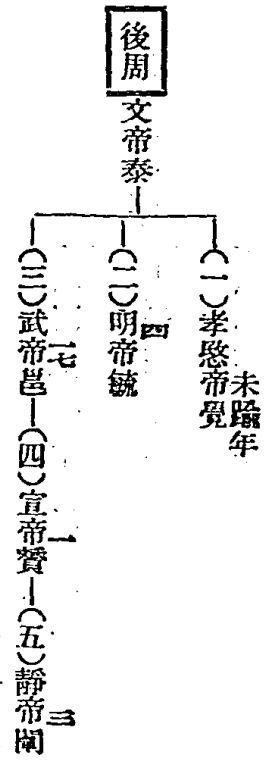 後周
文帝泰
(一)孝愍帝覺 未踰年
(二)明帝毓 四
(三)武帝邕 一七
(四)宣帝贇 一
(五)靜帝闡 三